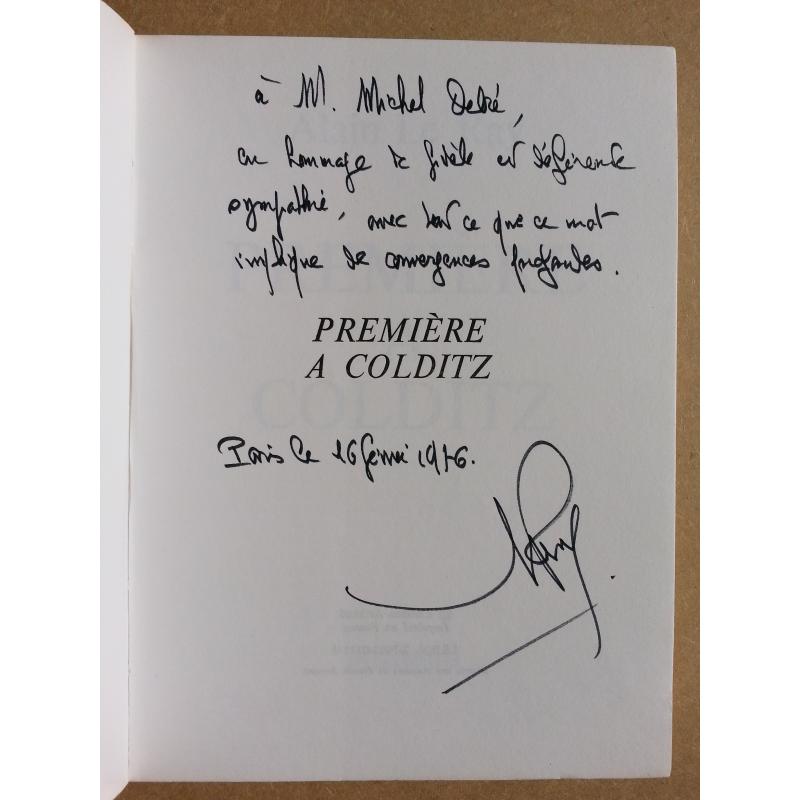 à M. Michel Debré,
en hommage de fidèle et déférente
sympathie, avec tout ce que ce mot
implique de convergences profondes.
PREMIÈRE
A COLDITZ
Paris le 16 février 1976.